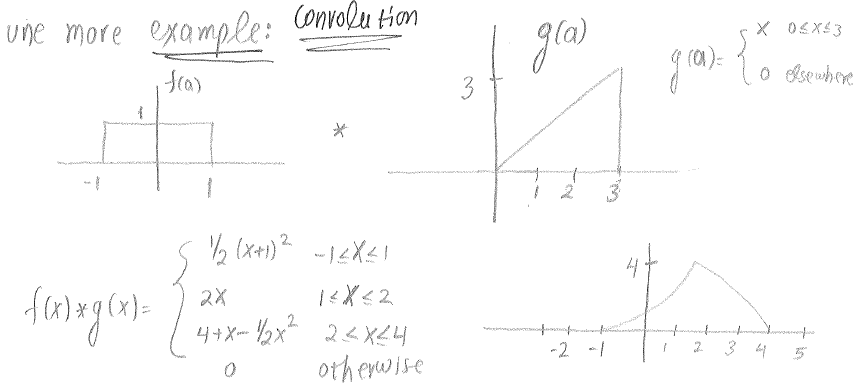 one more example: Convolution
f(a)
1
-1 1
*
g(a)
3
1 2 3
g(a) = { x 0≤x≤3
0 elsewhere
f(x)*g(x) = { 1/2 (x+1)² -1≤x≤1
2x 1≤x≤2
4+x-1/2x² 2≤x≤4
0 otherwise
4
-2 -1 1 2 3 4 5